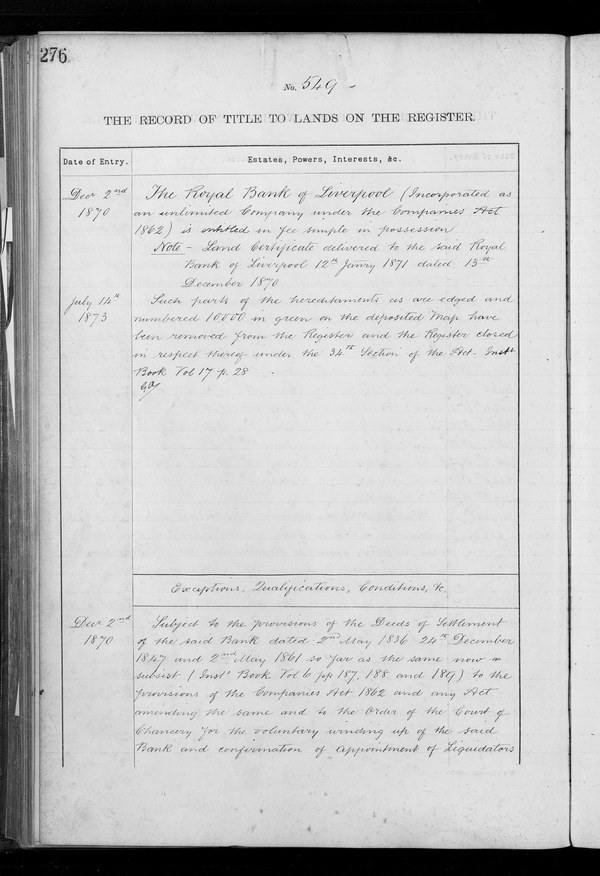 276
No. 549
THE RECORD OF TITLE TO LANDS ON THE REGISTER.
Date of Entry.
Estates, Powers, Interests, &c.
Decr 2nd
1870
The Royal Bank of Liverpool (Incorporated as
an unlimited Company under the Companies Act
1862) is entitled in fee simple in possession
Note – Land Certificate delivered to the said Royal
Bank of Liverpool 12th Janry 1871 dated 13th
December 1870
July 14th
1873
Such parts of the hereditaments as are edged and
numbered 10000 in green on the deposited Map have
been removed from the Register and the Register closed
in respect thereof under the 34th Section of the Act. Insts
Book Vol 17 p. 28
Exceptions, Qualifications, Conditions, &c.
Decr 2nd
1870
Subject to the provisions of the Deeds of Settlement
of the said Bank dated 2nd May 1836 24th December
1847 and 2nd May 1861 so far as the same now
subsist (Insts Book Vol 6 pp 187, 188 and 189) to the
provisions of the Companies Act 1862 and any Act
amending the same and to the Order of the Court of
Chancery for the voluntary winding up of the said
Bank and confirmation of appointment of Liquidators